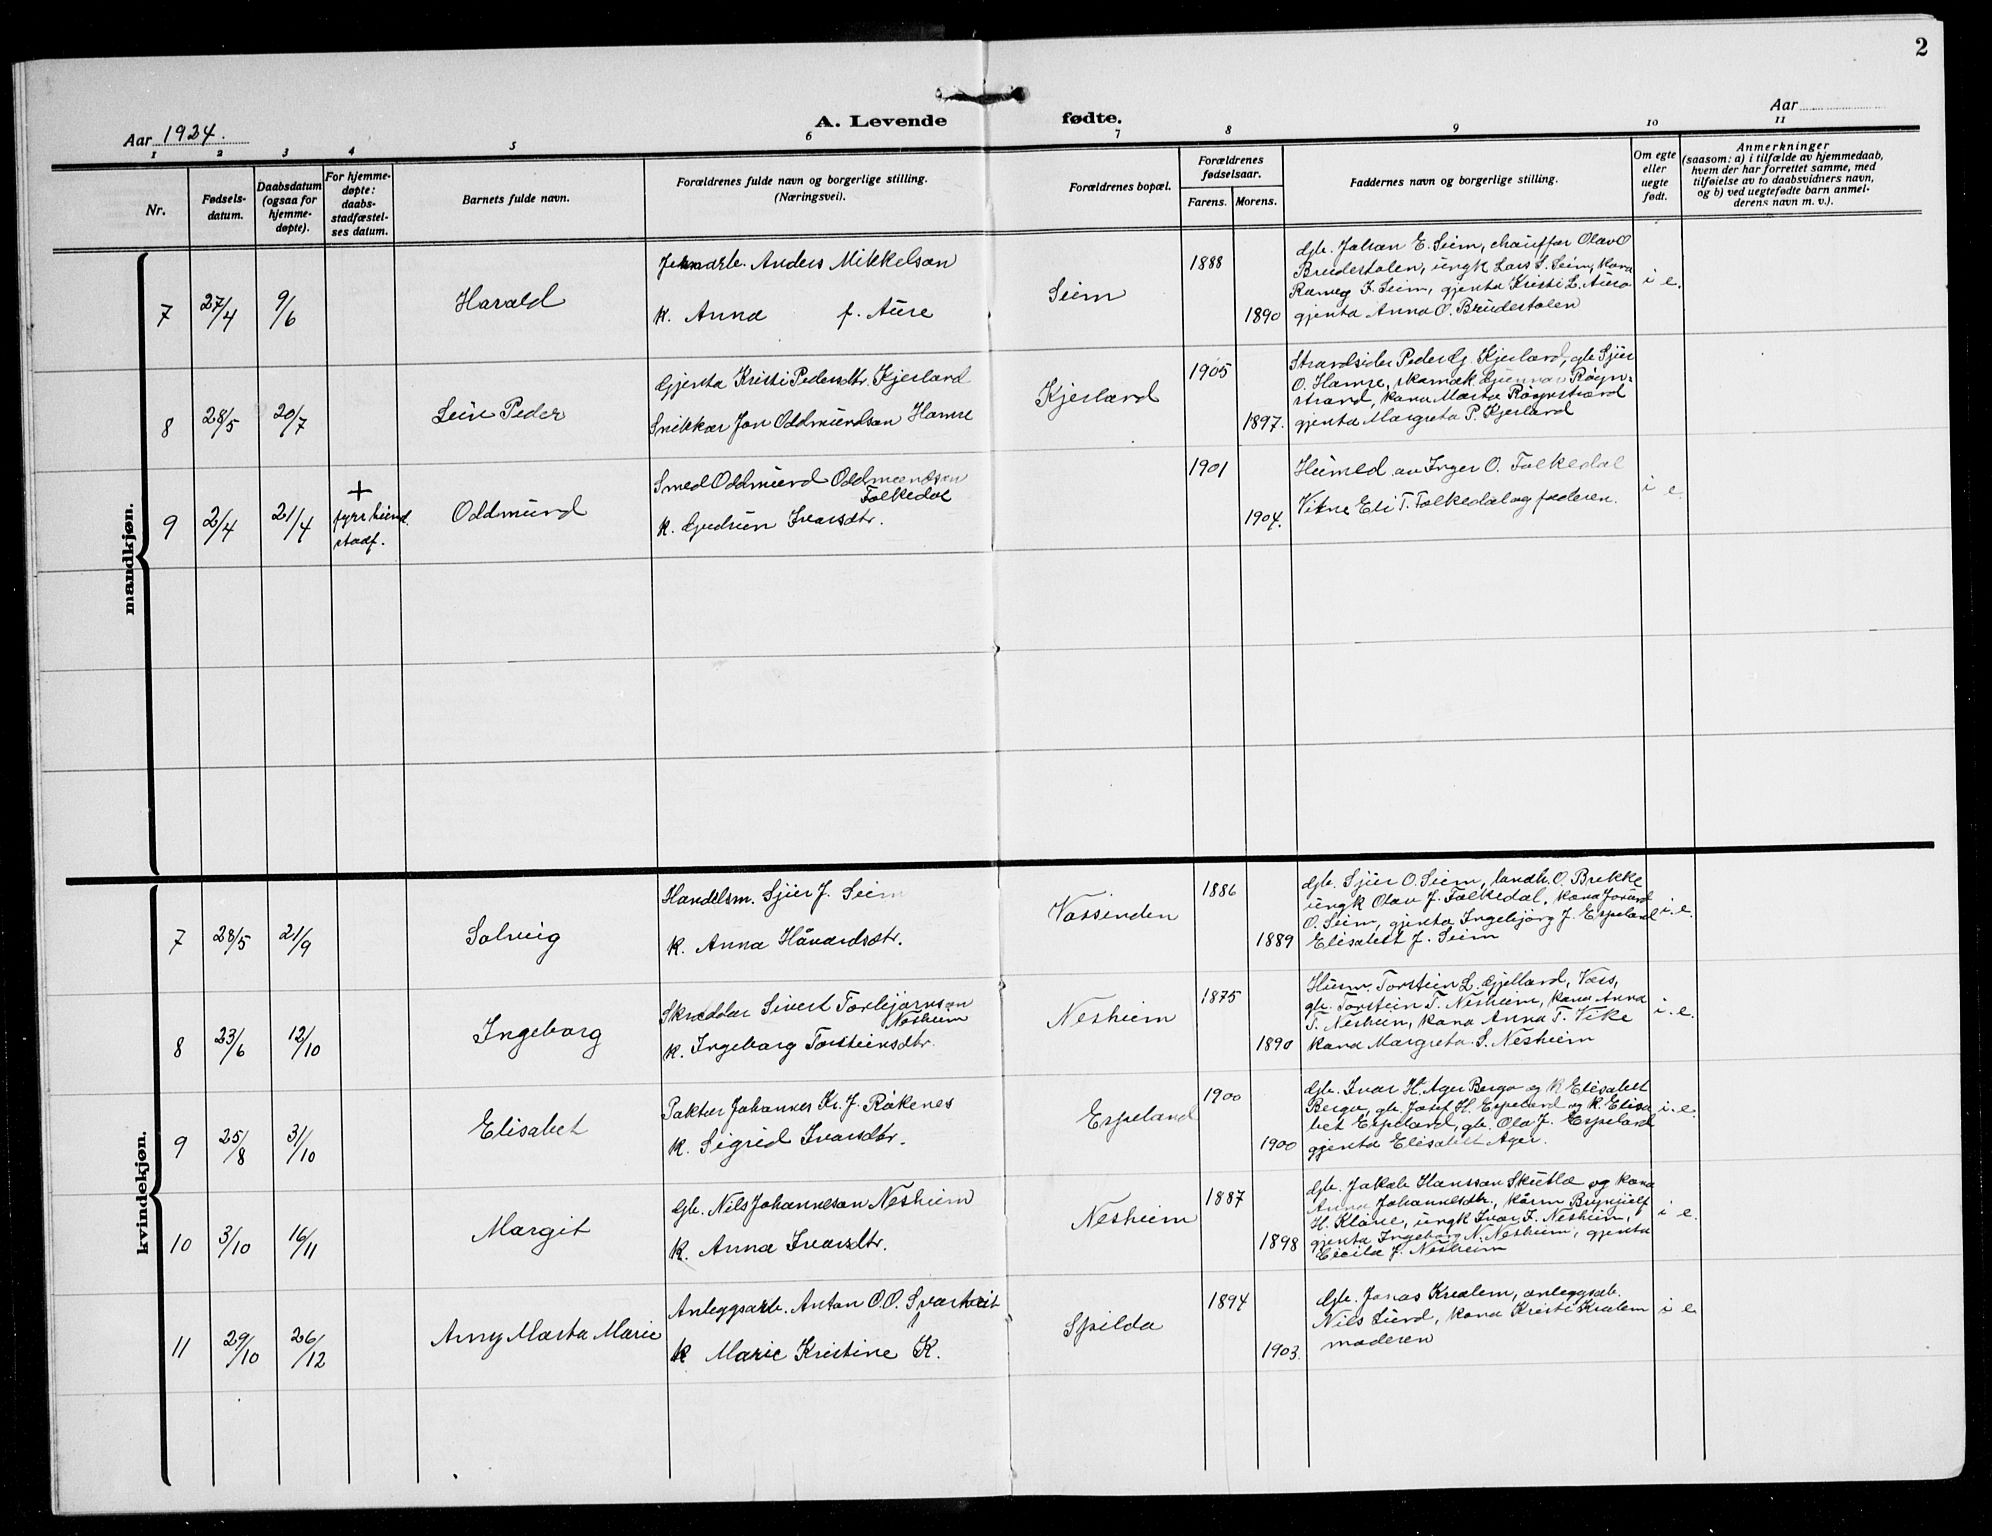 2
Aar 1924.
A. Levende fødte.
Aar
1 2 3 4 5 6 7 8 9 10 11
Nr.
Fødsels-
datum.
Daabsdatum
(ogsaa for
hjemme-
døpte).
For hjemme-
døpte:
daabs-
stadfæstel-
ses datum.
Barnets fulde navn.
Forældrenes fulde navn og borgerlige stilling.
(Næringsvei).
Forældrenes bopæl.
Forældrenes
fødselsaar.
Farens. Morens.
Faddernes navn og borgerlige stilling.
Om egte
eller
uegte
født.
Anmerkninger
(saasom: a) i tilfælde av hjemmedaab,
hvem der har forrettet samme, med
tilføielse av to daabsvidners navn,
og b) ved uegtefødte barn anmel-
derens navn m. v.).
mandkjøn.
7 27/4 9/6 Harald
Anders Mikkelson
k. Anna f. Aure
Seim
1888
1890
Gb. Johan E. Seim, chauffør Olav O
Brudestolen, ungk Lars S. Seim, kona
I. Seim, gjenta Kristi L. Aure
gjenta Anna O. Brudestolen
i e.
8 28/5 20/7 Leiv Peder
Gjenta Kristi Pedersdtr. Kjerland
Snikkar Jon Oddmundson Hamre
Kjerland
1905
1897.
Strandsitar Peder G. Kjerland, gb Sjur
O. Hamre, Røgn-
strand, kona Marta Røgnstrand
gjenta Margreta P. Kjerland
9 2/4 21/4
+
fyrr hund.
stadf.
Oddmund
Smed Oddmund Oddmundson
Folkedal
k. Gudrun Ivarsdtr.
1901
1904.
Heimed av Inger O. Folkedal
Vitne Eli T. Folkedal og faderen.
i e.
kvindekjøn.
7 28/5 21/9 Solveig
Handelsm. Sjur J. Seim
k. Anna Håvardsdtr.
Vassenden
1886
1889
Gb. Sjur O. Seim, landh. O. Brekke
ungk Olav J. Folkedal, kona
O. Seim, gjenta Ingebjørg J. Espeland
Elisabet J. Seim
i. e.
8 23/6 12/10 Ingeborg
Skreddar Sivert Torbjørnson
Nesheim
k. Ingeborg Torsteinsdtr.
Nesheim
1875
1890
Husm. Torstein L. Gjelland, Voss,
gb. Torstein T. Nesheim, kona Anna
T. Nesheim, kona Anna T. Vike
kona Margreta S. Nesheim
i. e.
9 25/8 31/10 Elisabet
Paktar Johannes Kr. J. Råkenes
k. Sigrid Ivarsdtr.
Espeland
1900
1900
Gb. Ivar H. Ager Berge og k Elisabet
Berge, gb. Josef H. Espeland og k. Elisa
bet Espeland, gb. Ola J. Espeland
gjenta Elisabet Ager.
i. e.
10 3/10 16/11 Margit
Gb. Nils Johanneson Nesheim
k. Anna Ivarsdtr.
Nesheim
1887
1898
Gb. Jakob Hansson Skutle og kona
Anna Johannesdtr, kårm Brynjulf
H. Kløve, ungk Ivar I. Nesheim,
gjenta Ingeborg N. Nesheim, gjenta
Cecilia J. Nesheim
i e.
11 29/10 26/12 Anny Marta Marie
Anleggsarb. Anton O.O.
k Marie Kristine K.
Spilda
1894
1903.
Gb. Jonas Kvalem, anleggsab.
Nils Lund, kona Kristi Kvalem
moderen
i e